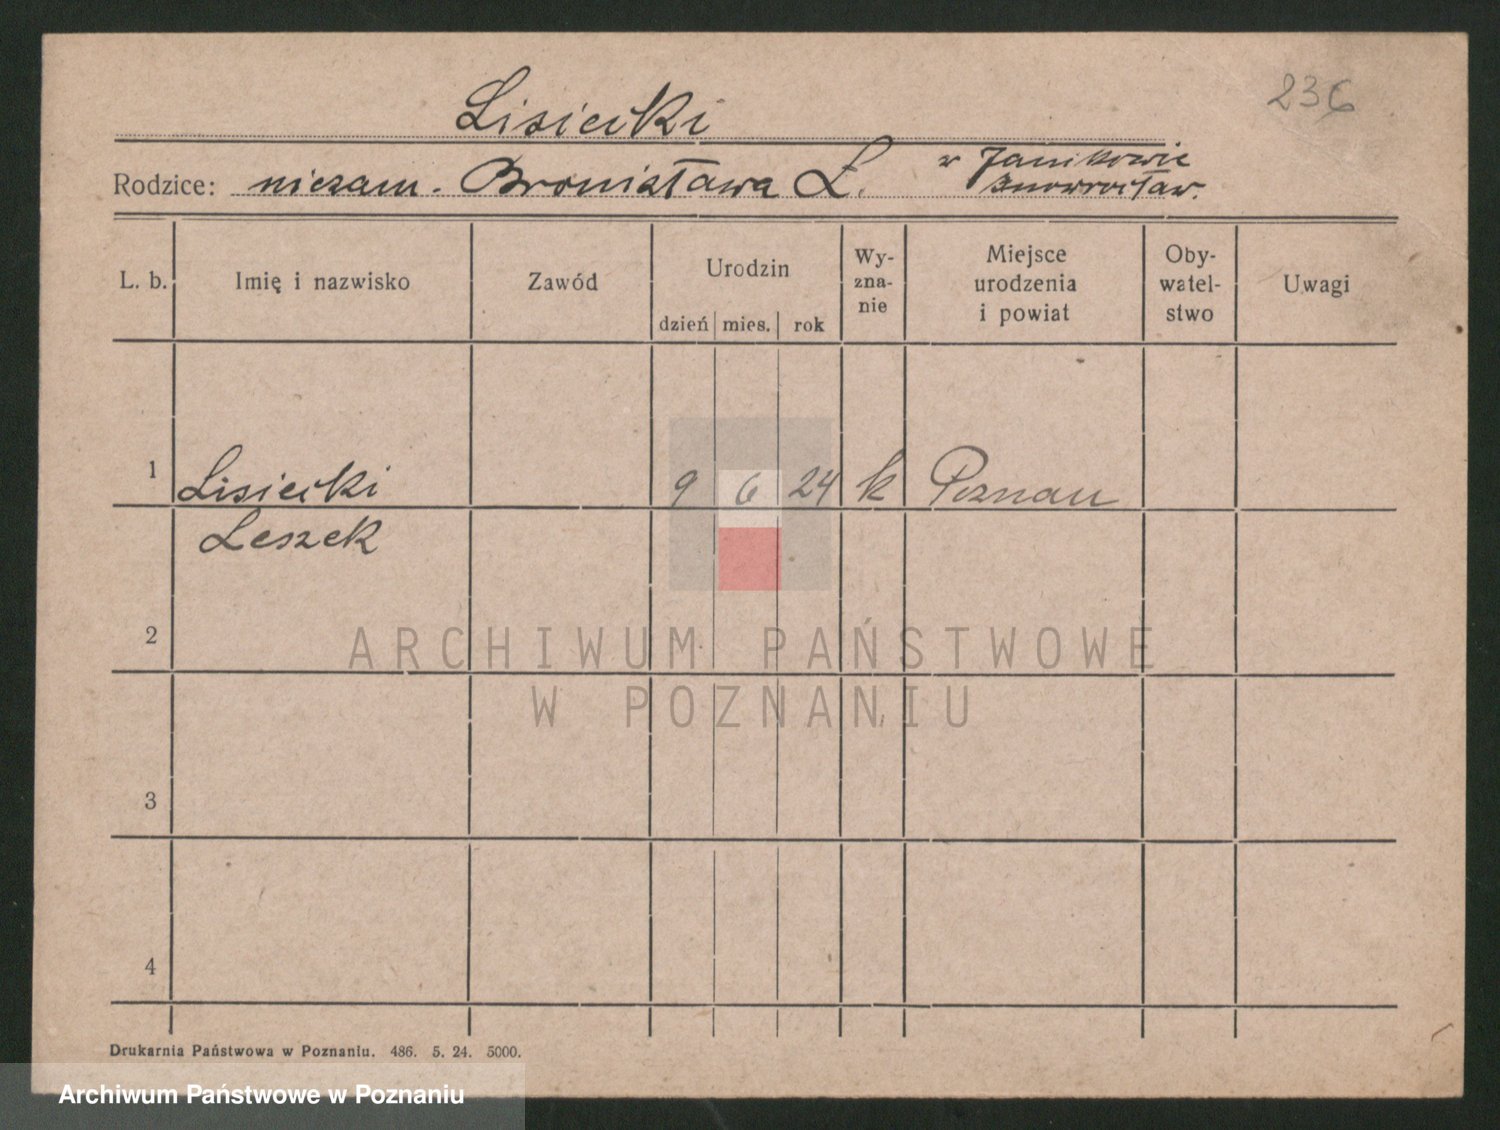 236
Lisiecki
Rodzice: niezam. Bronisława L. w Janikowie
Inowrocław.
L. b. Imię i nazwisko Zawód Urodzin dzień mies. rok Wy-zna-nie Miejsce urodzenia i powiat Oby-watel-stwo Uwagi
1 Lisiecki 9 6 24 k Poznan
Leszek
2
3
4
ARCHIWUM PAŃSTWOWE
W POZNANIU
Drukarnia Państwowa w Poznaniu. 486. 5. 24. 5000.
Archiwum Państwowe w Poznaniu